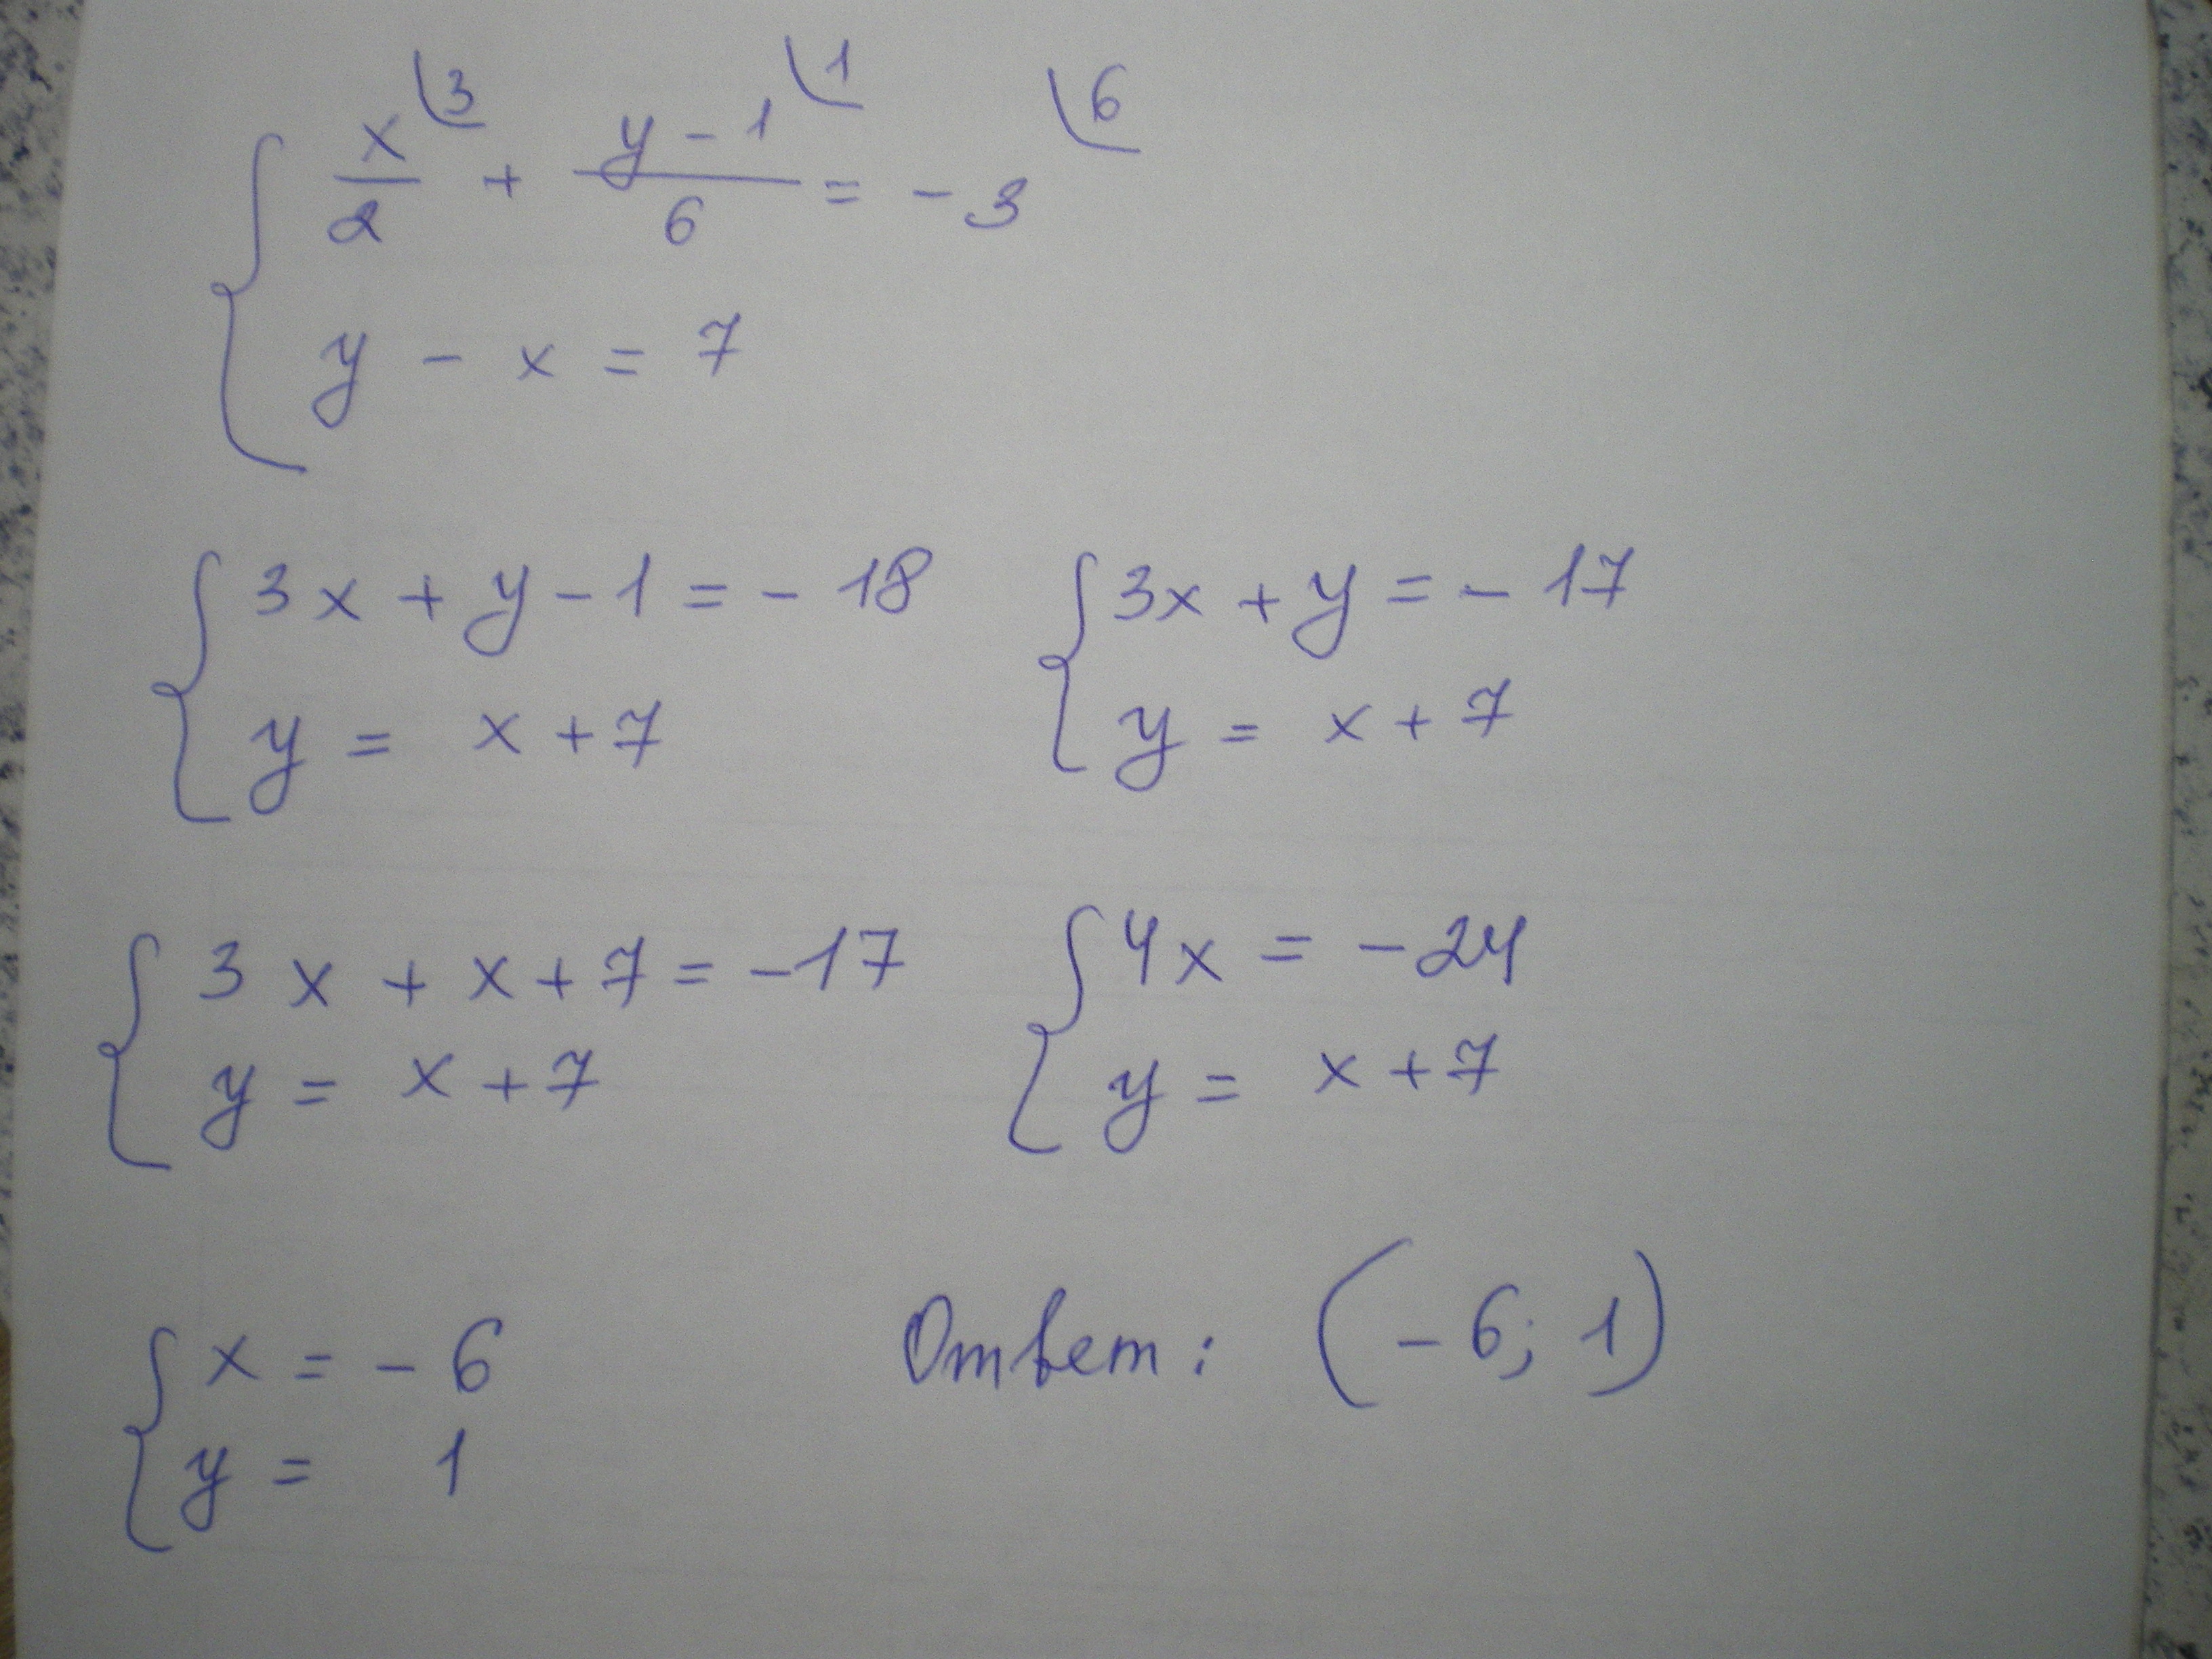 x/2 ⌞3 + (y - 1)/6 ⌞1 = - 3 ⌞6
y - x = 7
3x + y - 1 = - 18
y = x + 7
3x + y = - 17
y = x + 7
3x + x + 7 = -17
y = x + 7
4x = -24
y = x + 7
x = - 6
y = 1
Ответ: (- 6; 1)